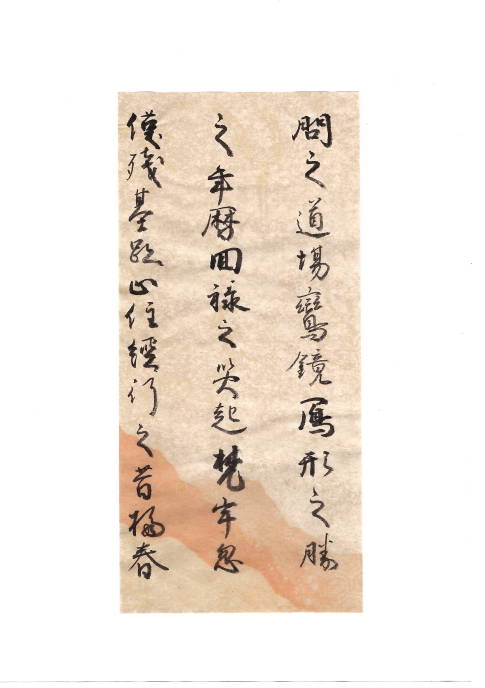 問之道場鸞鏡寫形之勝
之年暦回禄之災起梵宇忽
僅残基趾止住經行之昔春